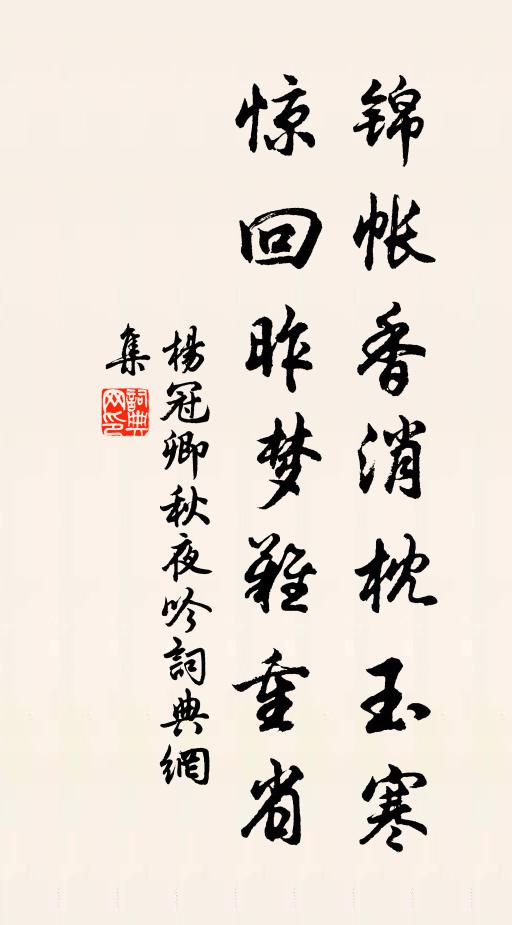 锦帐香消枕玉寒
惊回昨梦难重省
杨冠卿秋夜吟詞典網
集
詞典网印